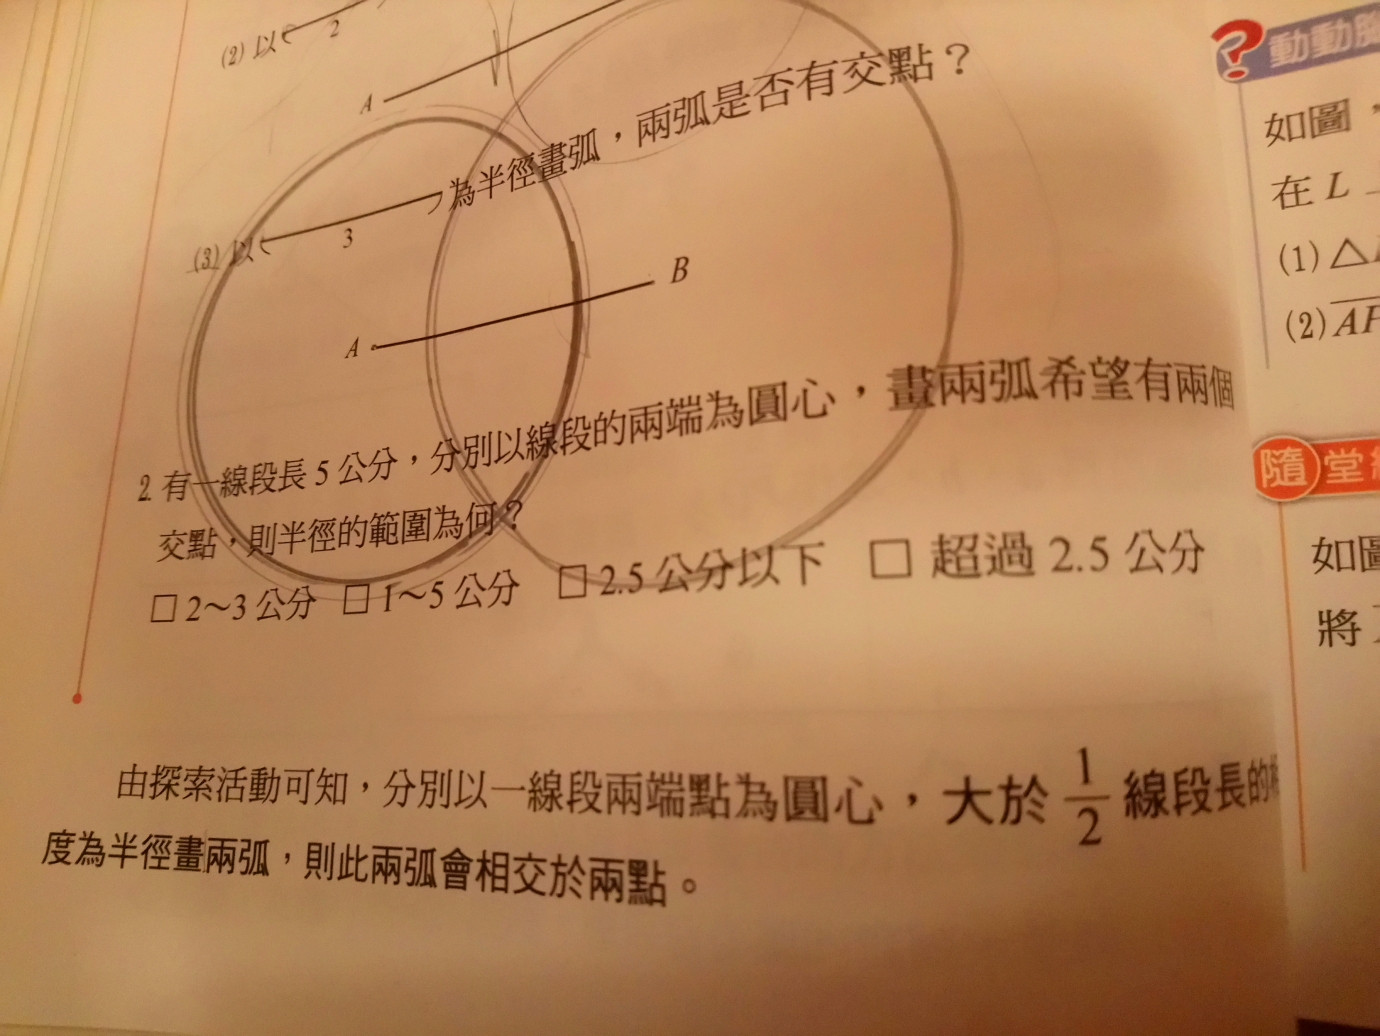 (2) 以
2
A
(3) 以 為半徑畫弧，兩弧是否有交點？
3
A B
2. 有一線段長 5 公分，分別以線段的兩端為圓心，畫兩弧希望有兩個
交點，則半徑的範圍為何？
□ 2～3 公分 □ 1～5 公分 □ 2.5 公分以下 □ 超過 2.5 公分
由探索活動可知，分別以一線段兩端點為圓心，大於 1/2 線段長的
度為半徑畫兩弧，則此兩弧會相交於兩點。
動動
如圖，
在 L
(1) △
(2) A
隨堂
如圖
將